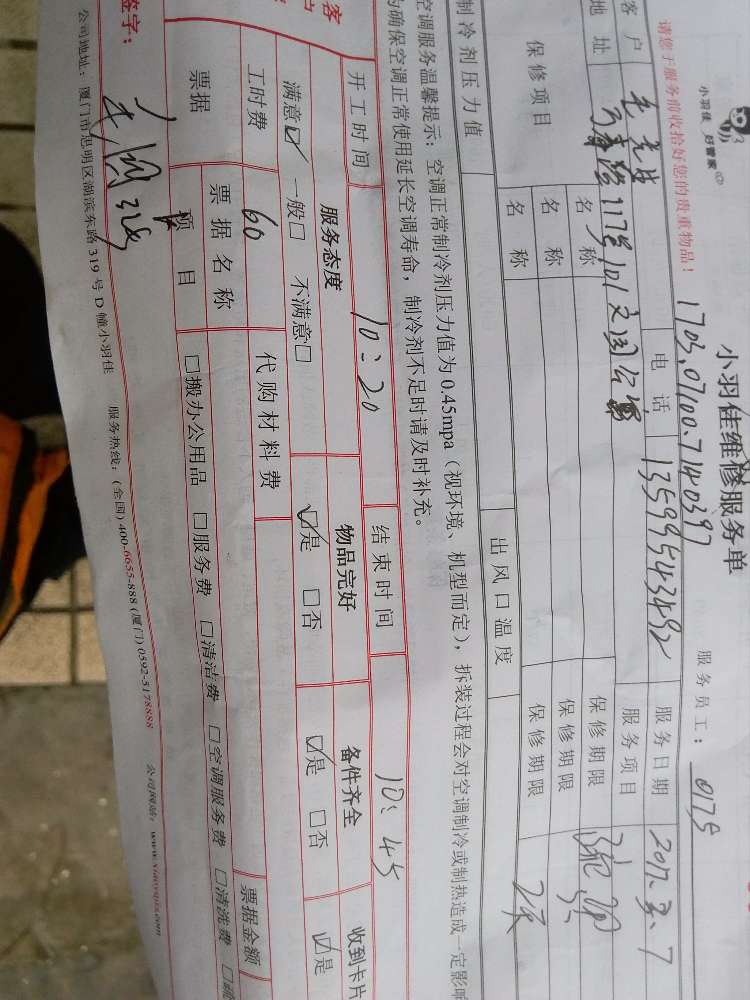 小羽佳 好管家
小羽佳维修服务单
请您于服务前收拾好您的贵重物品!
1703.0700.7140397
服务员工: 0175
客户
毛先生
电话
13599543492
服务日期
2017.3.7
地址
117号101文园公寓
服务项目
疏通
保修项目
名称
保修期限
名称
保修期限
名称
保修期限
2天
制冷剂压力值
出风口温度
空调服务温馨提示:空调正常制冷剂压力值为0.45mpa(视环境、机型而定),拆装过程会对空调制冷或制热造成一定影响
为确保空调正常使用延长空调寿命,制冷剂不足时请及时补充。
开工时间
10:20
结束时间
10:45
服务态度
物品完好
备件齐全
收到卡片
满意☑ 一般□ 不满意□
☑是 □否
☑是 □否
☑是
工时费
60
代购材料费
票据
票据名称
票据金额
项目
□搬办公用品 □服务费 □清洁费 □空调服务费 □清洗费
签字:
公司地址:厦门市思明区湖滨东路319号D幢小羽佳 服务热线:(全国)400-6655-888 (厦门)0592-5178888 公司网站: